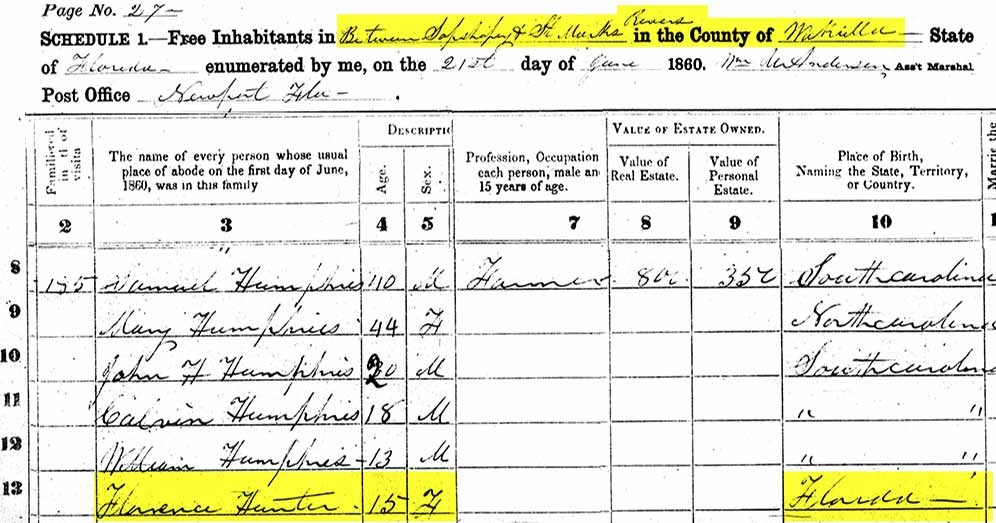 Page No. 27
SCHEDULE 1.—Free Inhabitants in Between Sopshopy & St Marks Rivers in the County of Wakulla State
of Florida enumerated by me, on the 21st day of June 1860. Wm Anderson Ass't Marshal
Post Office Newport Fla
DESCRIPTI VALUE OF ESTATE OWNED.
The name of every person whose usual place of abode on the first day of June, 1860, was in this family
Age. Sex.
Profession, Occupation each person, male an 15 years of age.
Value of Real Estate. Value of Personal Estate.
Place of Birth, Naming the State, Territory, or Country.
2 3 4 5 7 8 9 10
8 195 Samuel Humphries 40 M Farmer 800 350 Southcarolina
9 Mary Humphries 44 F Northcarolina
10 John H Humphries 20 M Southcarolina
11 Calvin Humphries 18 M " "
12 William Humphries 13 M " "
13 Florence Hunter 15 F Florida